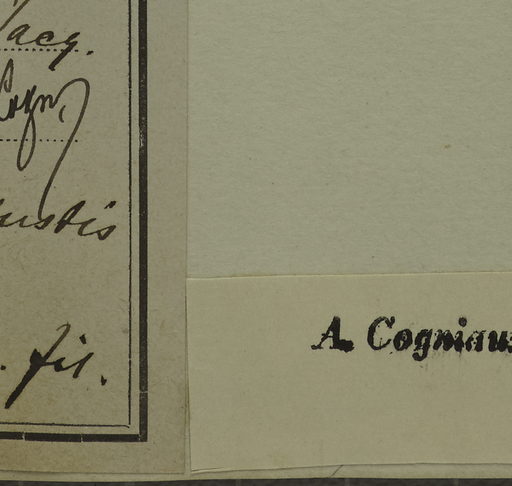 Jacq.
Cogn.
ustis
. fil.
A. Cogniaux